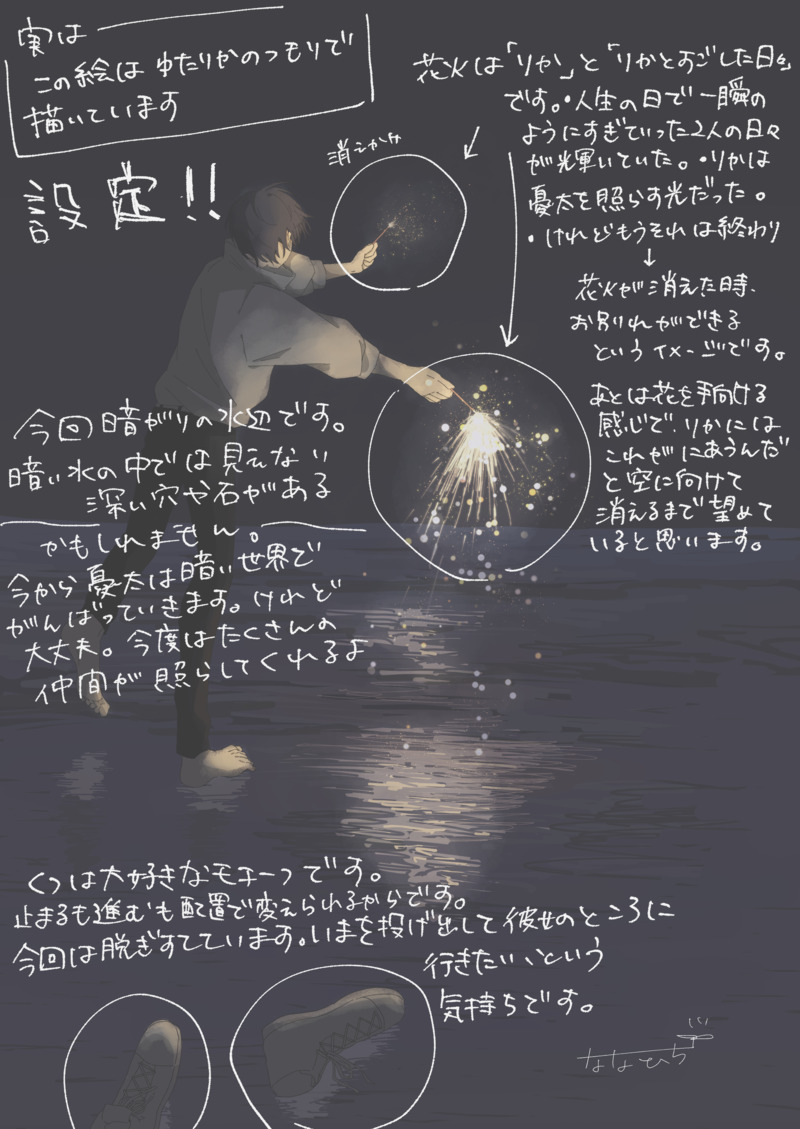 実は
この絵は ゆたりかのつもりで
描いています
設定!!
消えかけ
花火は「りか」と「りかとすごした日々」
です。・人生の日で一瞬の
ようにすぎていった2人の日々
が輝いていた。・りかは
憂太を照らす光だった。
・けれどもうそれは終わり
↓
花火が消えた時、
お別れができる
というイメージです。
あとは花を手向ける
感じで、りかには
これがにあうんだ
と空に向けて
消えるまで望めて
いると思います。
今回暗がりの水辺です。
暗い水の中では見えない
深い穴や石がある
かもしれません。
今から憂太は暗い世界で
がんばっていきます。けれど
大丈夫。今度はたくさんの
仲間が照らしてくれるよ
くつは大好きなモチーフです。
止まるも進むも配置で変えられるからです。
今回は脱ぎすてています。いまを投げ出して彼女のところに
行きたい、という
気持ちです。
ななせひら